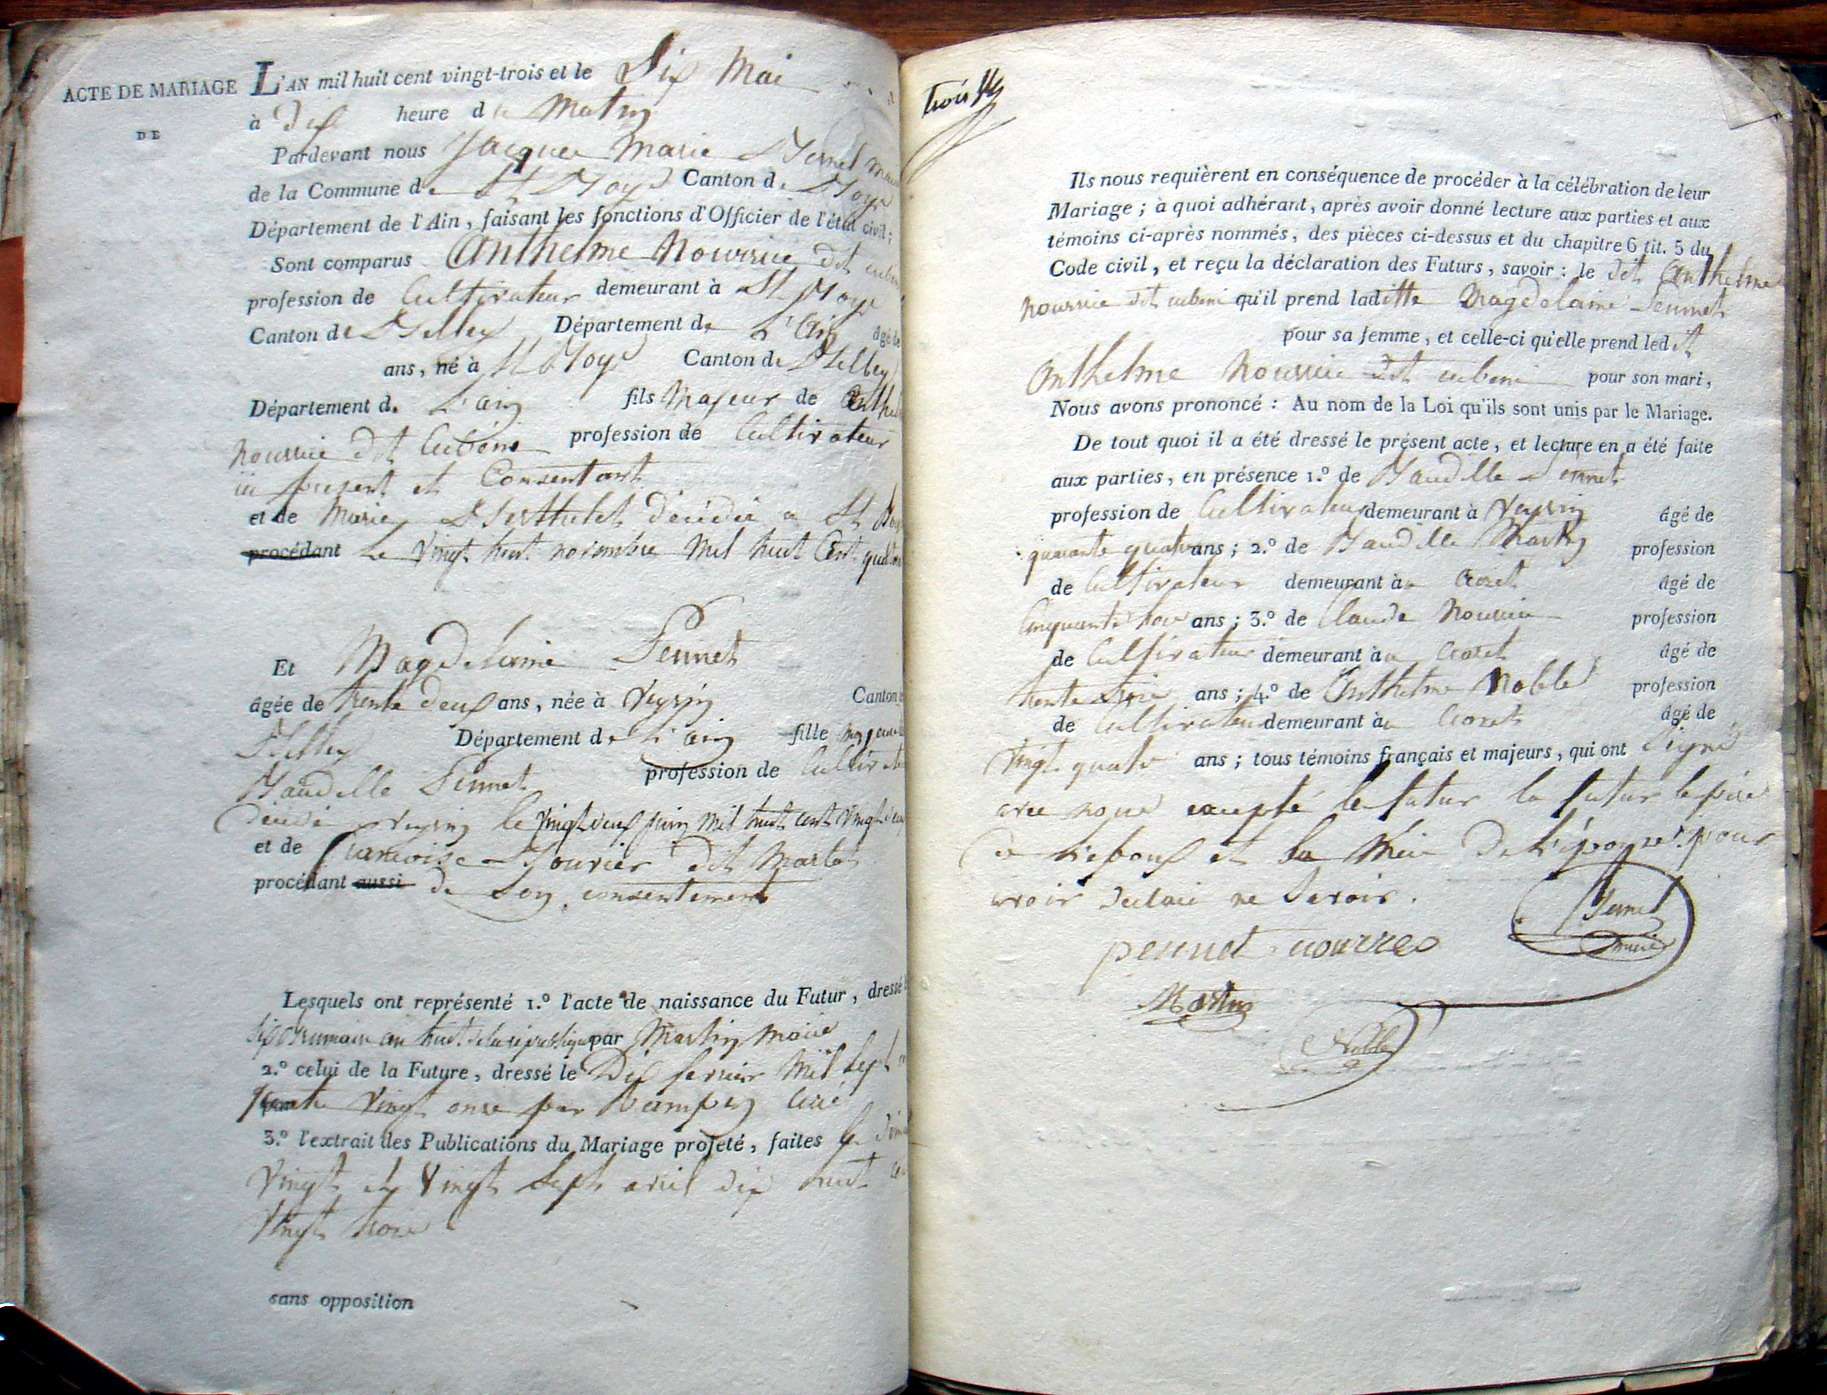 ACTE DE MARIAGE
DE
L'AN mil huit cent vingt-trois et le Six Mai
à Dix heure du Matin
Pardevant nous Jacques Marie
de la Commune de St Boys Canton de
Département de l'Ain, faisant les fonctions d'Officier de l'état civil;
Sont comparus Anthelme Nourrice dit
profession de Cultivateur demeurant à St Boys
Canton de Belley Département de L'Ain âgé de
ans, né à St Boys Canton de Belley
Département de L'ain fils Majeur de
nourrice dit profession de Cultivateur
ici present et Consentant
et de Marie Berthelet décédée a St
procédant le Vingt huit novembre Mil huit Cent
Et Magdelaine Pennet
âgée de trente deux ans, née à Veyrin Canton
Belley Département de L'ain fille
Baudille Pennet profession de
décédé a Veyrin le vingt deux juin mil huit cent vingt
et de Francoise Bouvier dit
procédant aussi de Son consentement
Lesquels ont représenté 1.º l'acte de naissance du Futur, dressé
an huit de la république par Martin Maire
2.º celui de la Future, dressé le Dix fevrier Mil Sept
Vingt onze par curé
3.º l'extrait des Publications du Mariage projeté, faites
Vingt et Vingt Sept avril dix huit
Vingt trois
sans opposition
trois
Ils nous requièrent en conséquence de procéder à la célébration de leur
Mariage; à quoi adhérant, après avoir donné lecture aux parties et aux
témoins ci-après nommés, des pièces ci-dessus et du chapitre 6 tit. 5 du
Code civil, et reçu la déclaration des Futurs, savoir: le dit Anthelme
nourrice dit qu'il prend laditte Magdelaine Pennet
pour sa femme, et celle-ci qu'elle prend ledit
Anthelme Nourrice dit pour son mari,
Nous avons prononcé: Au nom de la Loi qu'ils sont unis par le Mariage.
De tout quoi il a été dressé le présent acte, et lecture en a été faite
aux parties, en présence 1.º de Baudille Pennet
profession de Cultivateur demeurant à Veyrin âgé de
quarante quatre ans; 2.º de Baudille Martin profession
de Cultivateur demeurant à âgé de
Cinquante ans; 3.º de Claude Nourrice profession
de Cultivateur demeurant à âgé de
trente trois ans; 4.º de Anthelme Noble profession
de Cultivateur demeurant à âgé de
Vingt quatre ans; tous témoins français et majeurs, qui ont Signé
avec nous excepté le futur la future le père
de L'epoux et la Mère De L'épouse pour
avoir declaré ne Savoir.
pennet
Martin
Noble